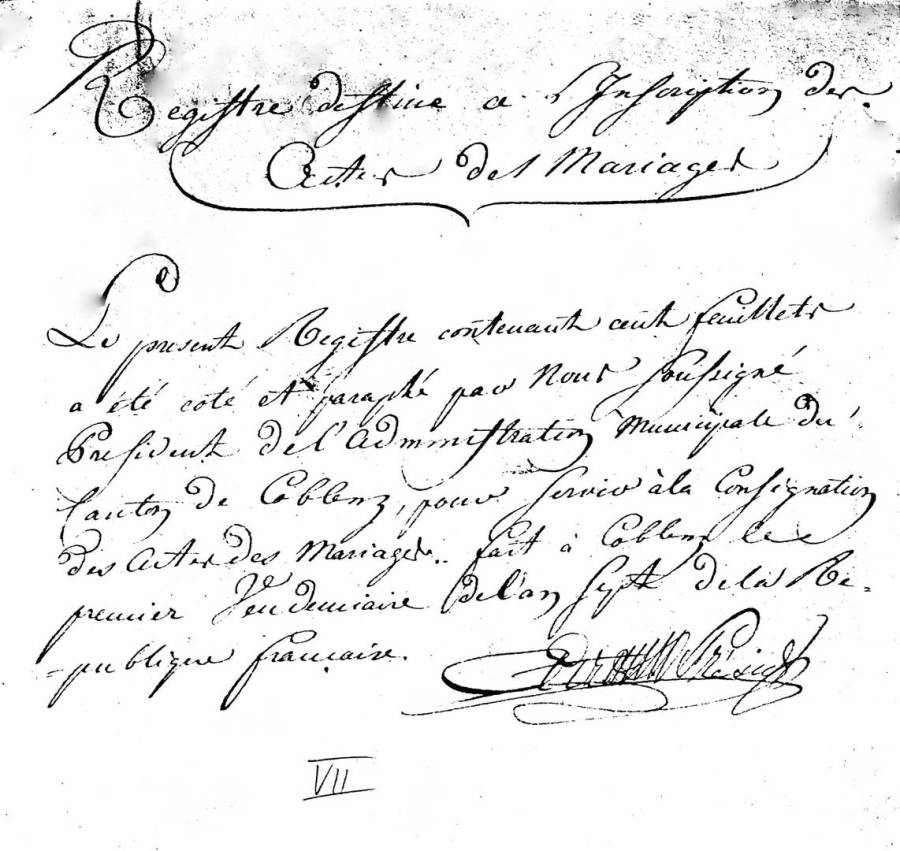 Registre destiné a l'Inscription des
Actes des Mariages
Le present Registre contenant cent feuillets
a été coté et paraphé par Nous soussigné
President de l'administration Municipale du
Canton de Coblenz, pour servir à la Consignation
des actes des Mariages.. fait à Coblenz le
premier Vendemiaire de l'an Sept de la Ré-
-publique française.
Presidt
VII